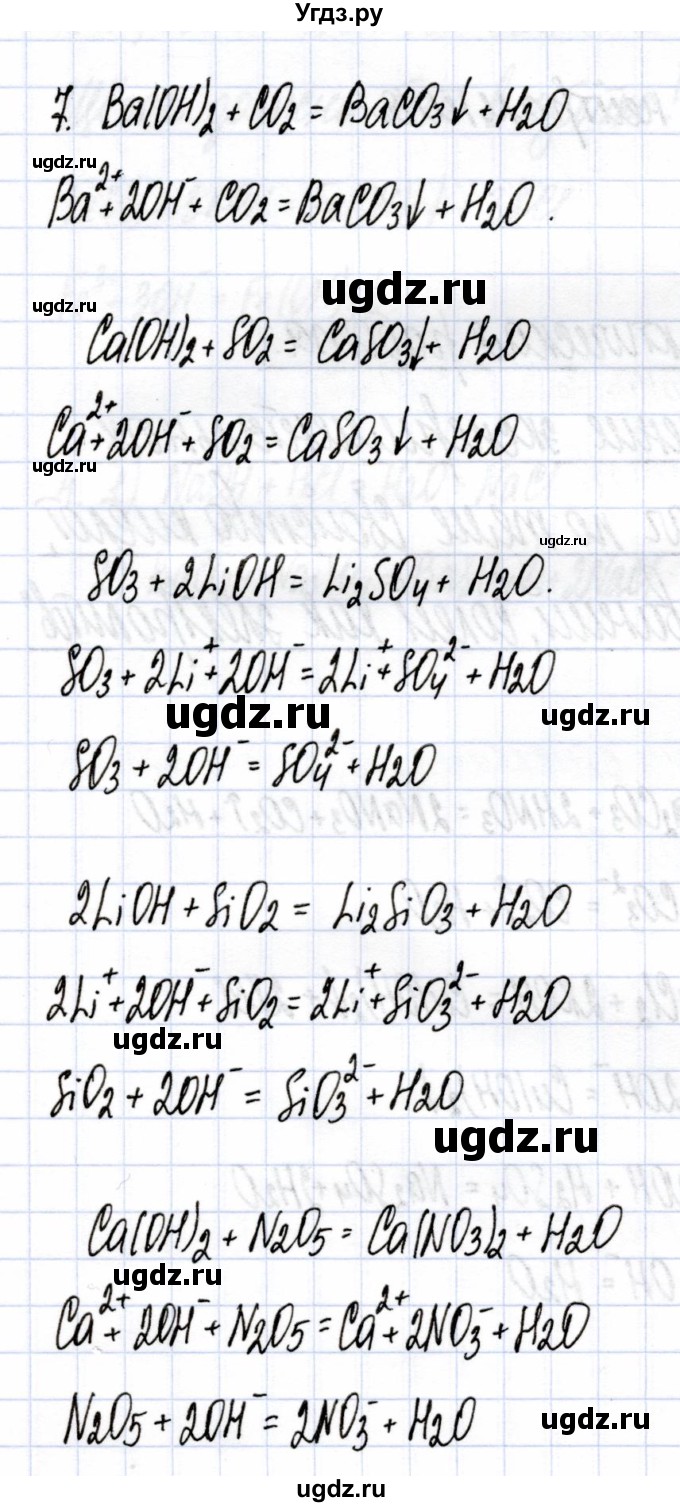 Угдз.ру
7. Ba(OH)₂ + CO₂ = BaCO₃↓ + H₂O
ugdz.ru
Ba²⁺ + 2OH⁻ + CO₂ = BaCO₃↓ + H₂O.
ugdz.ru
ugdz.ru
Ca(OH)₂ + SO₂ = CaSO₃↓ + H₂O
Ca²⁺ + 2OH⁻ + SO₂ = CaSO₃↓ + H₂O
ugdz.ru
ugdz.ru
SO₃ + 2LiOH = Li₂SO₄ + H₂O.
SO₃ + 2Li⁺ + 2OH⁻ = 2Li⁺ + SO₄²⁻ + H₂O
ugdz.ru
ugdz.ru
SO₃ + 2OH⁻ = SO₄²⁻ + H₂O
2LiOH + SiO₂ = Li₂SiO₃ + H₂O
2Li⁺ + 2OH⁻ + SiO₂ = 2Li⁺ + SiO₃²⁻ + H₂O
ugdz.ru
SiO₂ + 2OH⁻ = SiO₃²⁻ + H₂O
ugdz.ru
Ca(OH)₂ + N₂O₅ = Ca(NO₃)₂ + H₂O
ugdz.ru
Ca²⁺ + 2OH⁻ + N₂O₅ = Ca²⁺ + 2NO₃⁻ + H₂O
N₂O₅ + 2OH⁻ = 2NO₃⁻ + H₂O
ugdz.ru
ugdz.ru